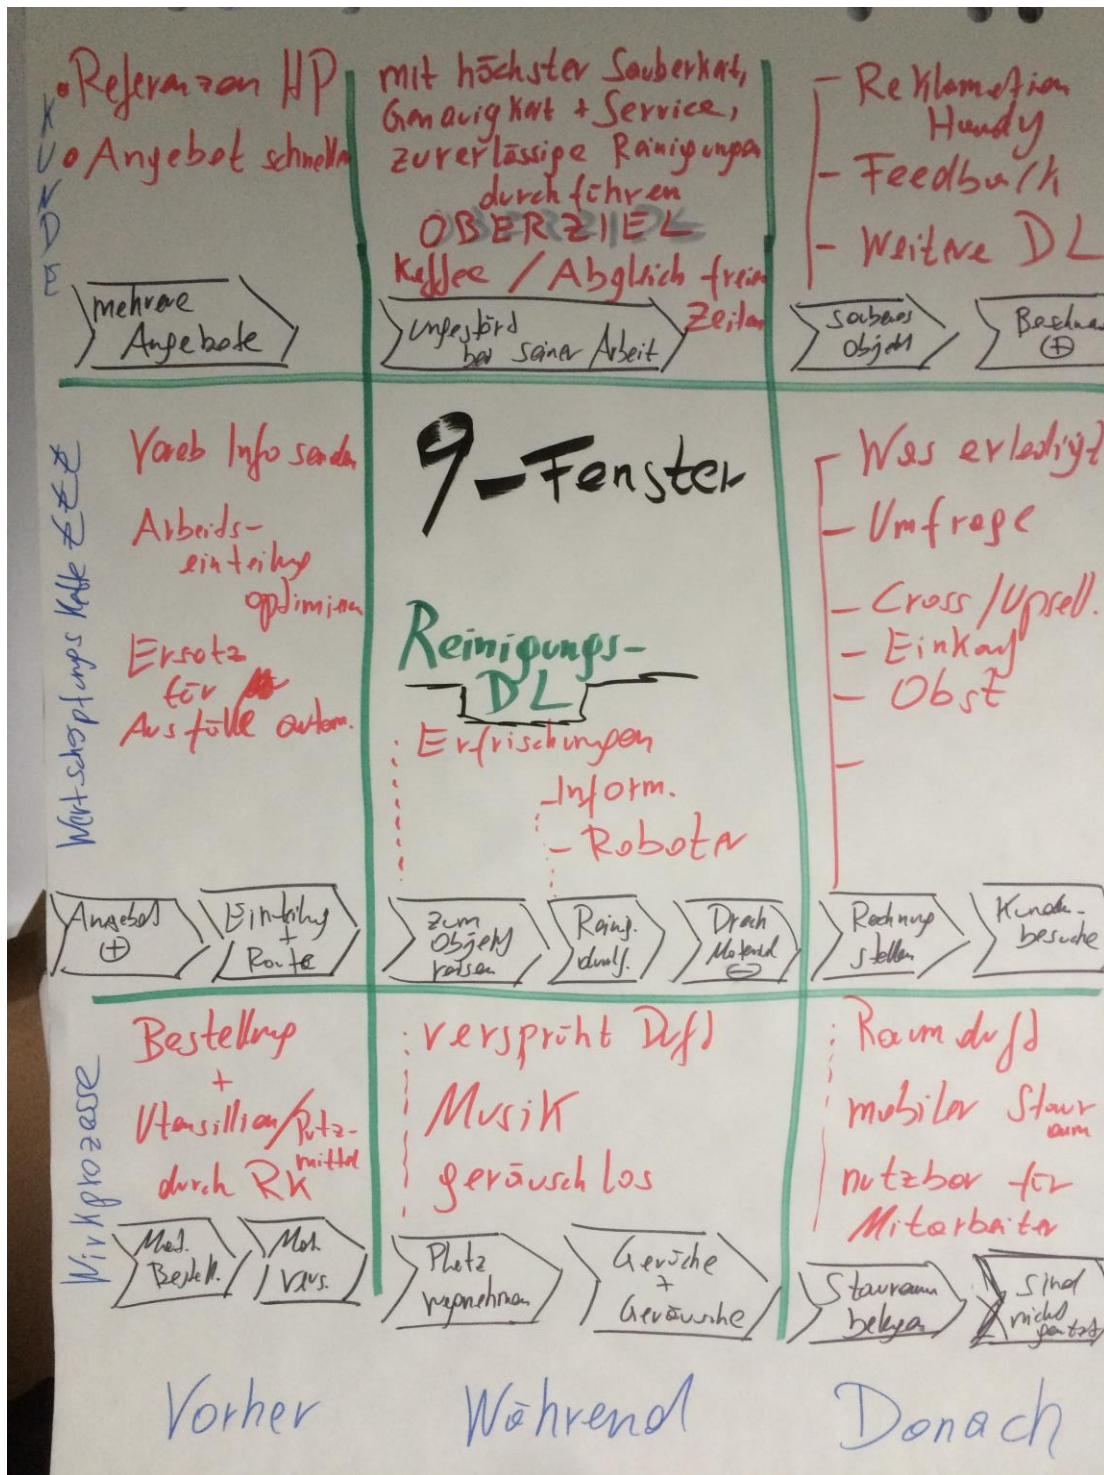 KUNDE
• Referenzen HP
• Angebot schneller
mehrere
Angebote
mit höchster Sauberkeit,
Genauigkeit + Service,
zuverlässige Reinigungen
durchführen
OBERZIEL
Kaffee / Abgleich freien
Zeiten
ungestörd
bei seiner Arbeit
- Reklamation
Handy
- Feedback
- Weitere DL
sauberes
Objekt
⊕
Wertschöpfungs Kette
Vorab Info senden
Arbeids-
einteilung
optimieren
Ersatz
für
Ausfälle autom.
Angebot
⊕
Einteilung
+
Route
9-Fenster
Reinigungs-
DL
Erfrischungen
-Inform.
- Roboter
zum
Objekt
reisen
Reing.
durchf.
Drech
Material
⊖
- Was erledigt
- Umfrage
- Cross/Upsell.
- Einkauf
- Obst
-
Rechnung
stellen
Kunden-
besuche
Wirkprozesse
Bestellung
+
Utensillien/Putz-
mittel
durch RK
Mat.
Bestell.
Mat.
Vers.
versprüht Duft
Musik
geräuschlos
Platz
wegnehmen
Gerüche
+
Geräusche
Raumduft
mobiler Stau
raum
nutzbar für
Mitarbeiter
Stauraum
belegen
sind
nicht
genutzt
Vorher
Während
Danach